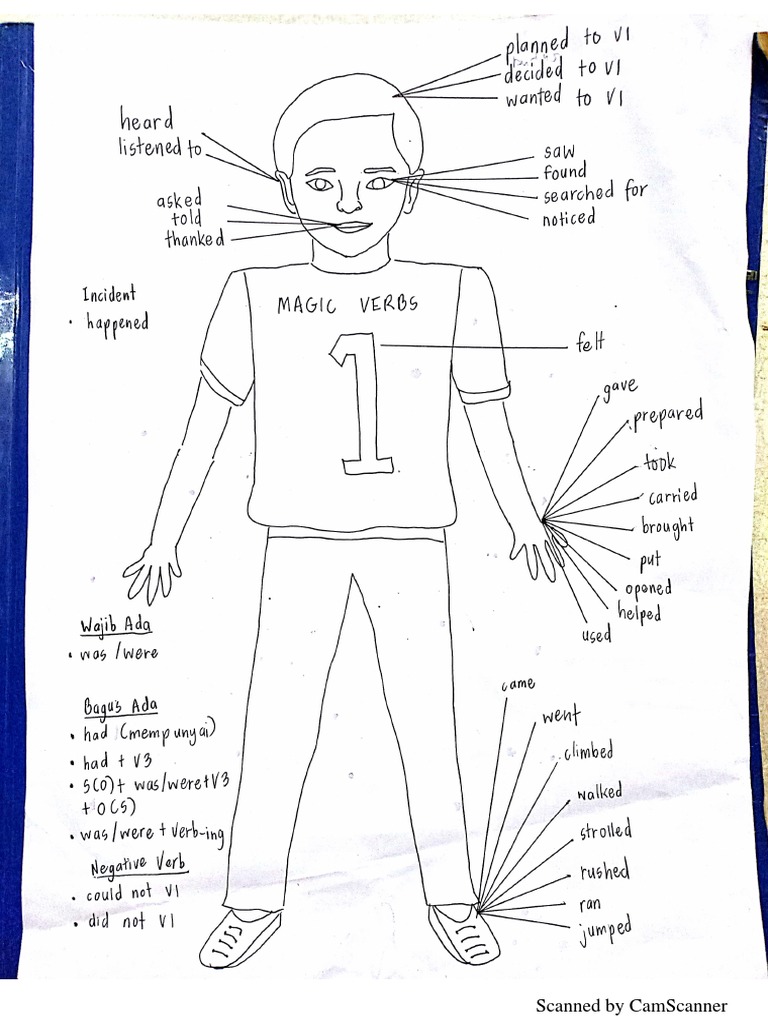 planned to V1
decided to V1
wanted to V1
heard
listened to
saw
found
searched for
noticed
asked
told
thanked
Incident
• happened
MAGIC VERBS
1
felt
gave
prepared
took
carried
brought
put
opened
helped
used
Wajib Ada
• was /were
Bagus Ada
• had (mempunyai)
• had + V3
• S(O) + was/were+V3
+ O(S)
• was/were + verb-ing
Negative Verb
• could not V1
• did not V1
came
went
climbed
walked
strolled
rushed
ran
jumped
Scanned by CamScanner